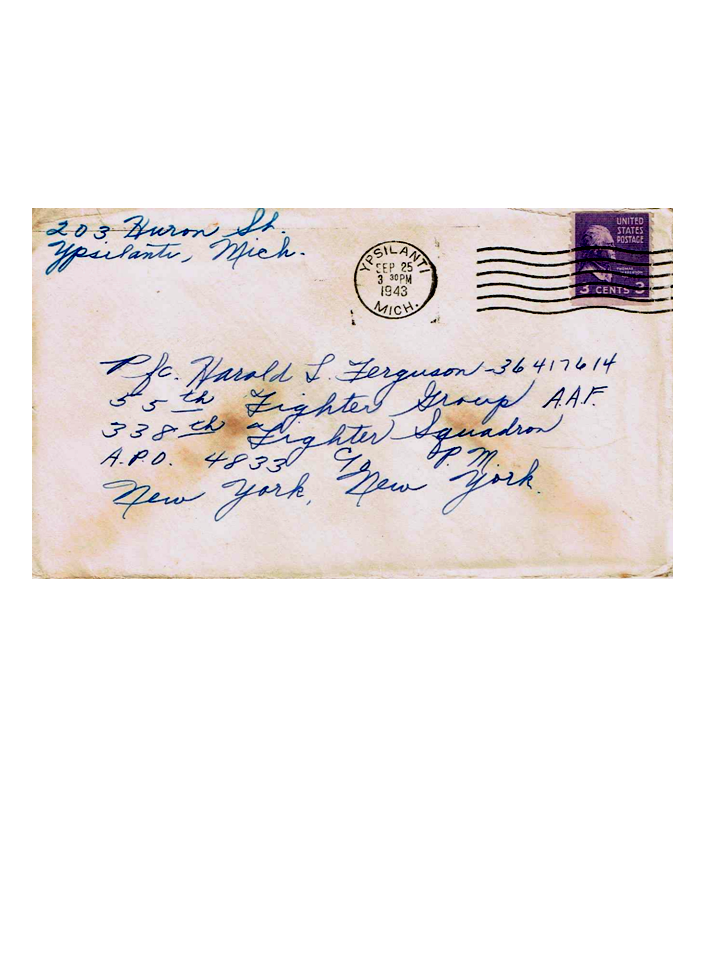 203 Huron St.
Ypsilanti, Mich.
YPSILANTI
SEP 25
3 30PM
1943
MICH.
UNITED
STATES
POSTAGE
THOMAS
JEFFERSON
3 CENTS 3
Pfc. Harold L. Ferguson - 36417614
55th Fighter Group A.A.F.
338th Fighter Squadron
A.P.O. 4833 c/o P.M.
New York, New York.